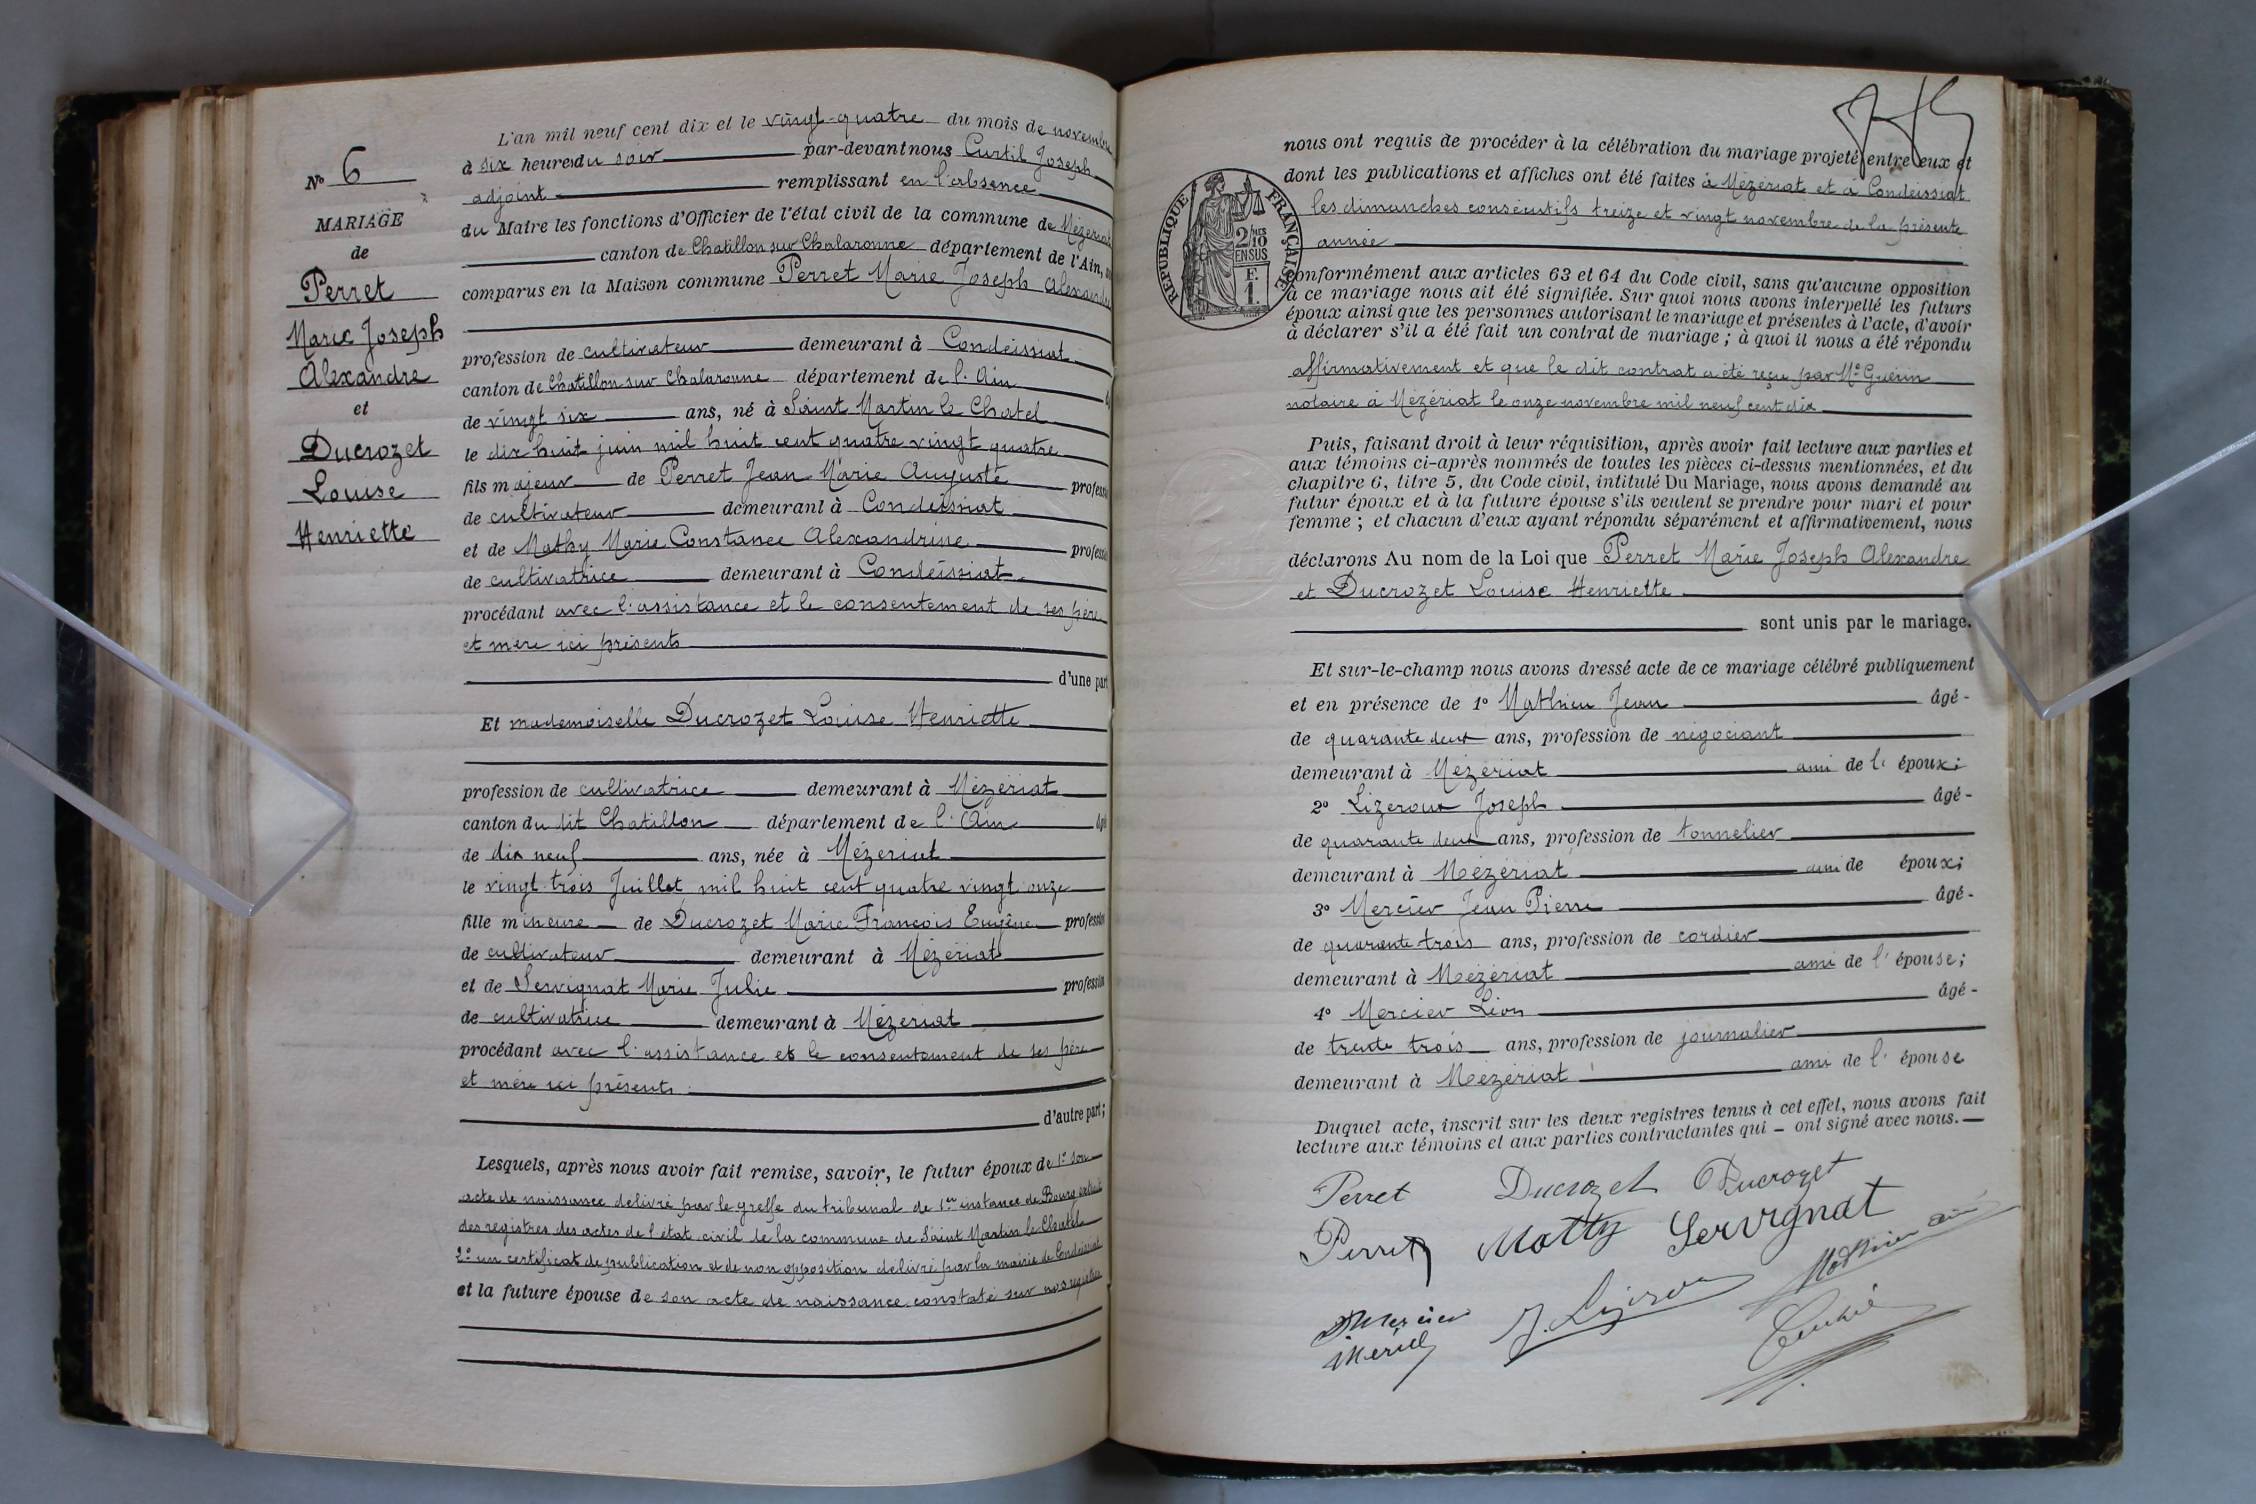 N° 6
MARIAGE
de
Perret
Marie Joseph
Alexandre
et
Ducrozet
Louise
Henriette
L'an mil neuf cent dix et le vingt-quatre du mois de novembre
à six heures du soir par-devant nous Curtil Joseph
adjoint remplissant en l'absence
du Maire les fonctions d'Officier de l'état civil de la commune de Mézériat
canton de Chatillon sur Chalaronne département de l'Ain,
comparus en la Maison commune Perret Marie Joseph Alexandre
profession de cultivateur demeurant à Condeissiat
canton de Chatillon sur Chalaronne département de l'Ain
de vingt six ans, né à Saint Martin le Chatel
le dix huit juin mil huit cent quatre vingt quatre
fils majeur de Perret Jean Marie Auguste profession
de cultivateur demeurant à Condeissiat
et de Mathy Marie Constance Alexandrine profession
de cultivatrice demeurant à Condeissiat
procédant avec l'assistance et le consentement de ses père
et mère ici présents
d'une part
Et mademoiselle Ducrozet Louise Henriette
profession de cultivatrice demeurant à Mézériat
canton du dit Chatillon département de l'Ain âgée
de dix neuf ans, née à Mézériat
le vingt trois Juillet mil huit cent quatre vingt onze
fille mineure de Ducrozet Marie François Eugène profession
de cultivateur demeurant à Mézériat
et de Servignat Marie Julie profession
de cultivatrice demeurant à Mézériat
procédant avec l'assistance et le consentement de ses père
et mère ici présents
d'autre part;
Lesquels, après nous avoir fait remise, savoir, le futur époux de 1° son
acte de naissance délivré par le greffe du tribunal de 1ère instance de Bourg extrait
des registres des actes de l'état civil de la commune de Saint Martin le Chatel
2° un certificat de publication et de non opposition délivré par la mairie de Condeissiat
et la future épouse de son acte de naissance constaté sur nos registres
nous ont requis de procéder à la célébration du mariage projeté entre eux et
dont les publications et affiches ont été faites à Mézériat et à Condeissiat
les dimanches consécutifs treize et vingt novembre de la présente
année
RÉPUBLIQUE FRANÇAISE
2/10
EN SUS
F.
1.
conformément aux articles 63 et 64 du Code civil, sans qu'aucune opposition
à ce mariage nous ait été signifiée. Sur quoi nous avons interpellé les futurs
époux ainsi que les personnes autorisant le mariage et présentes à l'acte, d'avoir
à déclarer s'il a été fait un contrat de mariage ; à quoi il nous a été répondu
affirmativement et que le dit contrat a été reçu par Me Guérin
notaire à Mézériat le onze novembre mil neuf cent dix
Puis, faisant droit à leur réquisition, après avoir fait lecture aux parties et
aux témoins ci-après nommés de toutes les pièces ci-dessus mentionnées, et du
chapitre 6, titre 5, du Code civil, intitulé Du Mariage, nous avons demandé au
futur époux et à la future épouse s'ils veulent se prendre pour mari et pour
femme ; et chacun d'eux ayant répondu séparément et affirmativement, nous
déclarons Au nom de la Loi que Perret Marie Joseph Alexandre
et Ducrozet Louise Henriette
sont unis par le mariage.
Et sur-le-champ nous avons dressé acte de ce mariage célébré publiquement
et en présence de 1° Mathieu Jean âgé
de quarante deux ans, profession de négociant
demeurant à Mézériat ami de l' époux;
2° Lizeroux Joseph âgé
de quarante deux ans, profession de tonnelier
demeurant à Mézériat ami de époux;
3° Mercier Jean Pierre âgé
de quarante trois ans, profession de cordier
demeurant à Mézériat ami de l' épouse;
4° Mercier Léon âgé
de trente trois ans, profession de journalier
demeurant à Mézériat ami de l' épouse
Duquel acte, inscrit sur les deux registres tenus à cet effet, nous avons fait
lecture aux témoins et aux parties contractantes qui – ont signé avec nous.
Perret Ducrozet Ducrozet
Perret Matty Servignat
Mercier J. Lizerou Mathieu ainé